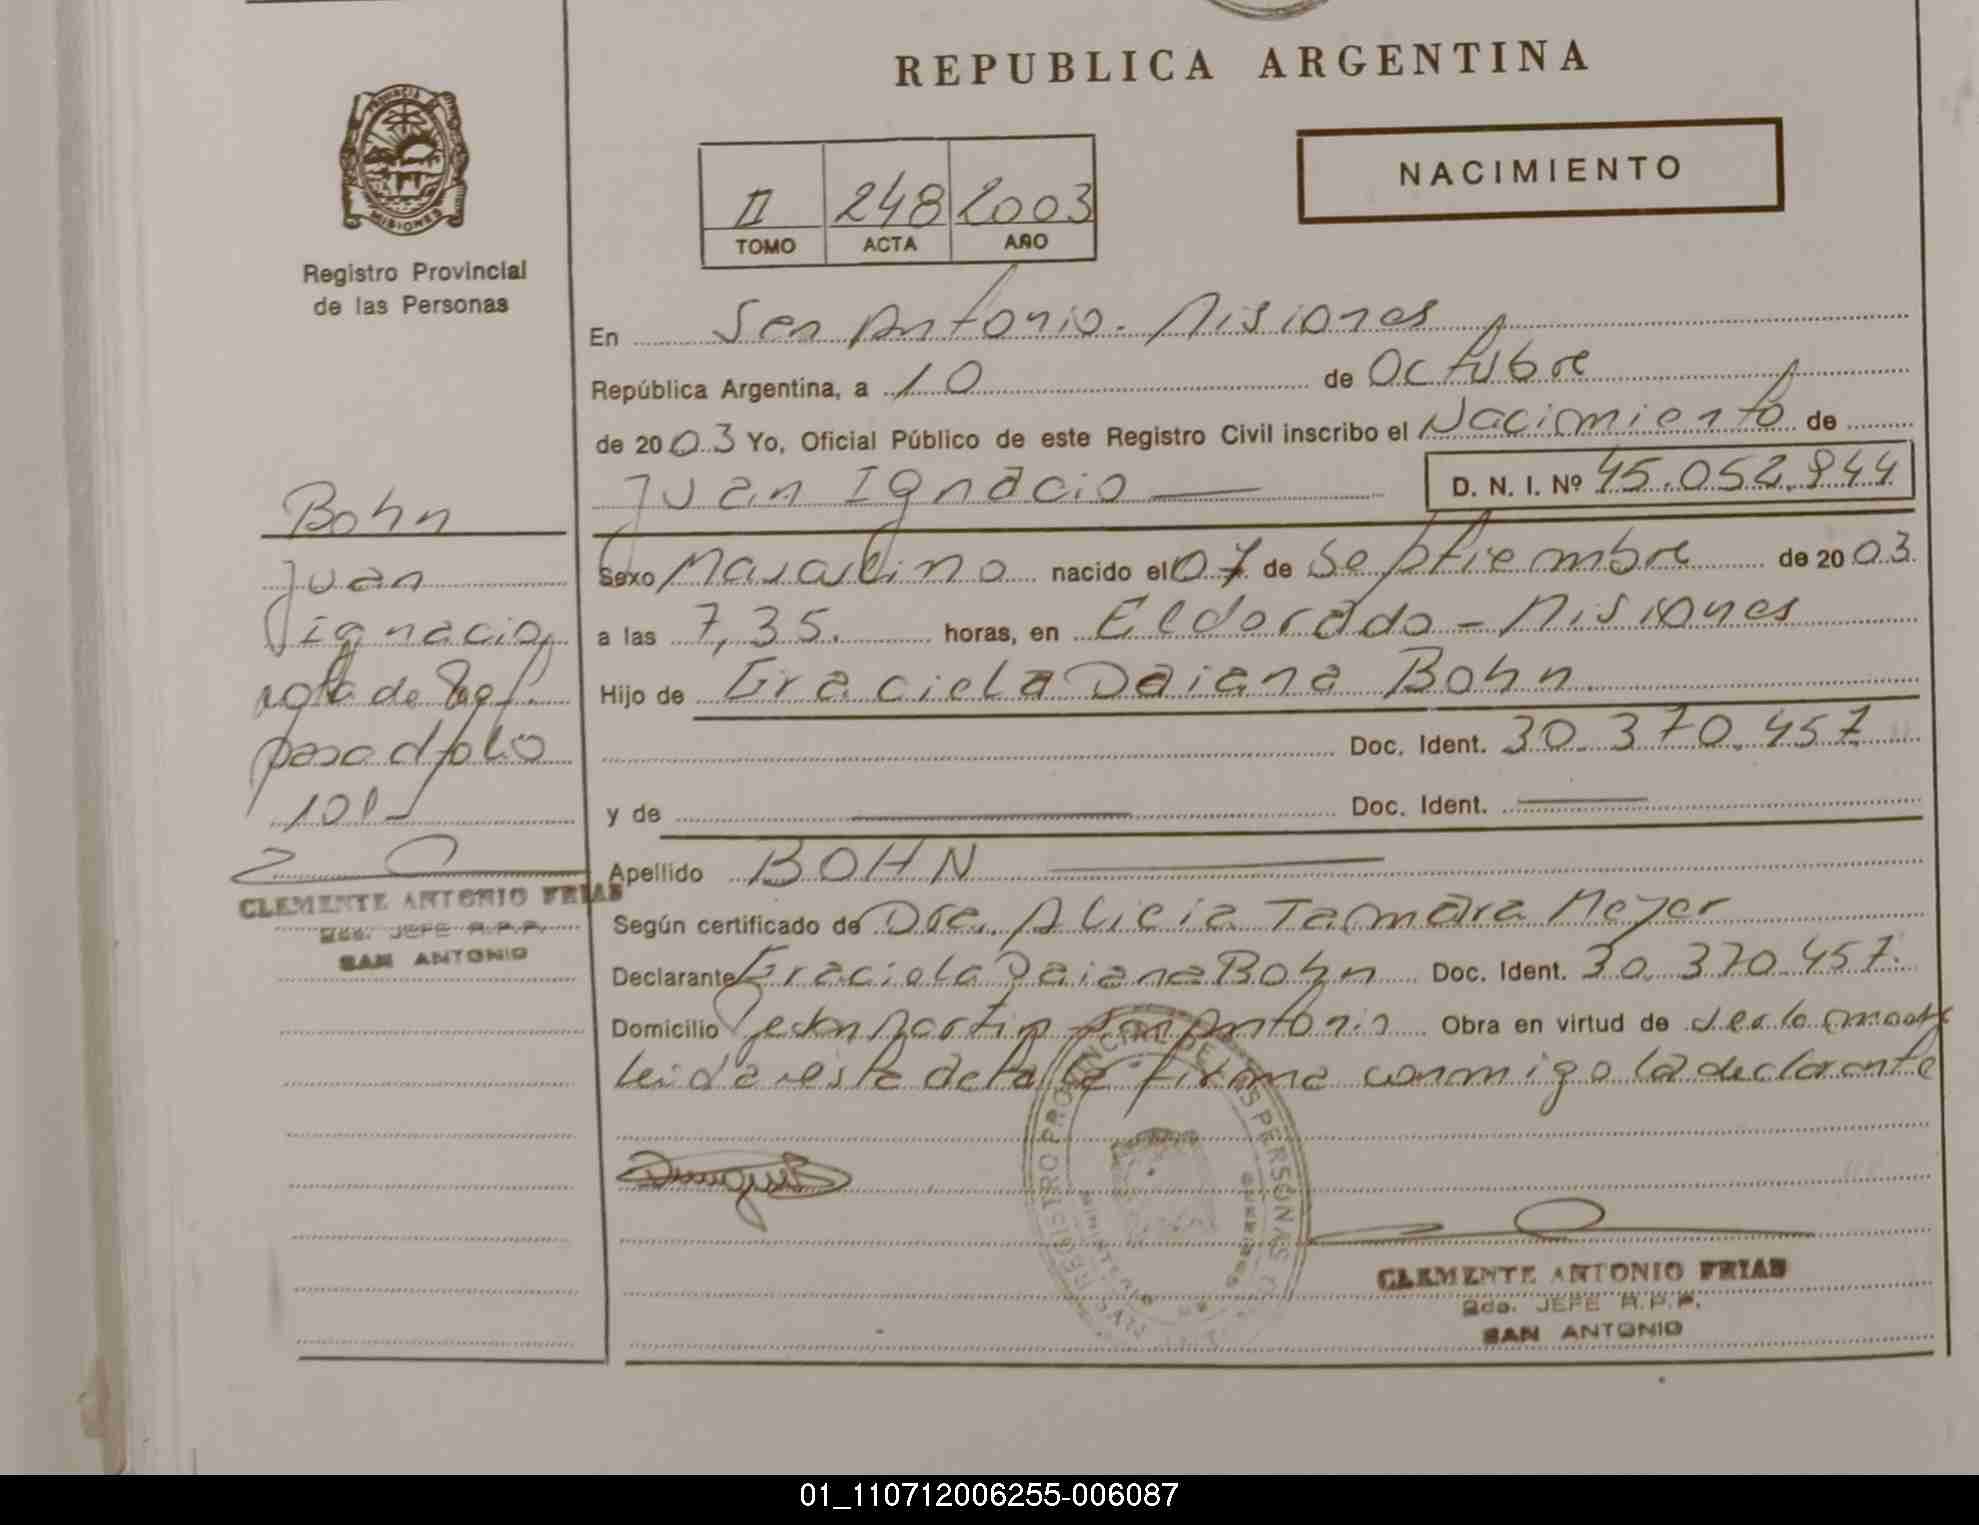 REPUBLICA ARGENTINA
NACIMIENTO
II 248 2003
TOMO ACTA AÑO
PROVINCIA DE MISIONES
Registro Provincial
de las Personas
En San Antonio. Misiones
República Argentina, a 10 de Octubre
de 2003 Yo, Oficial Público de este Registro Civil inscribo el Nacimiento de
Juan Ignacio D. N. I. Nº 45.052.944
Sexo Masculino nacido el 07 de Septiembre de 2003.
a las 7,35. horas, en Eldorado - Misiones
Hijo de Graciela Daiana Bohn
Doc. Ident. 30.370.457
y de Doc. Ident.
Apellido BOHN
Según certificado de Dra. Alicia Tamara Meyer
Declarante Graciela Daiana Bohn Doc. Ident. 30.370.457.
Domicilio San Antonio Obra en virtud de
Leida esta acta firma conmigo la declarante
Bohn
Juan
Ignacio,
nota de Ref.
pasa a folio
101
CLEMENTE ANTONIO FRIAS
2do. JEFE R.P.P.
SAN ANTONIO
REGISTRO PROVINCIAL DE LAS PERSONAS
MINISTERIO DE GOBIERNO
CLEMENTE ANTONIO FRIAS
2do. JEFE R.P.P.
SAN ANTONIO
01_110712006255-006087